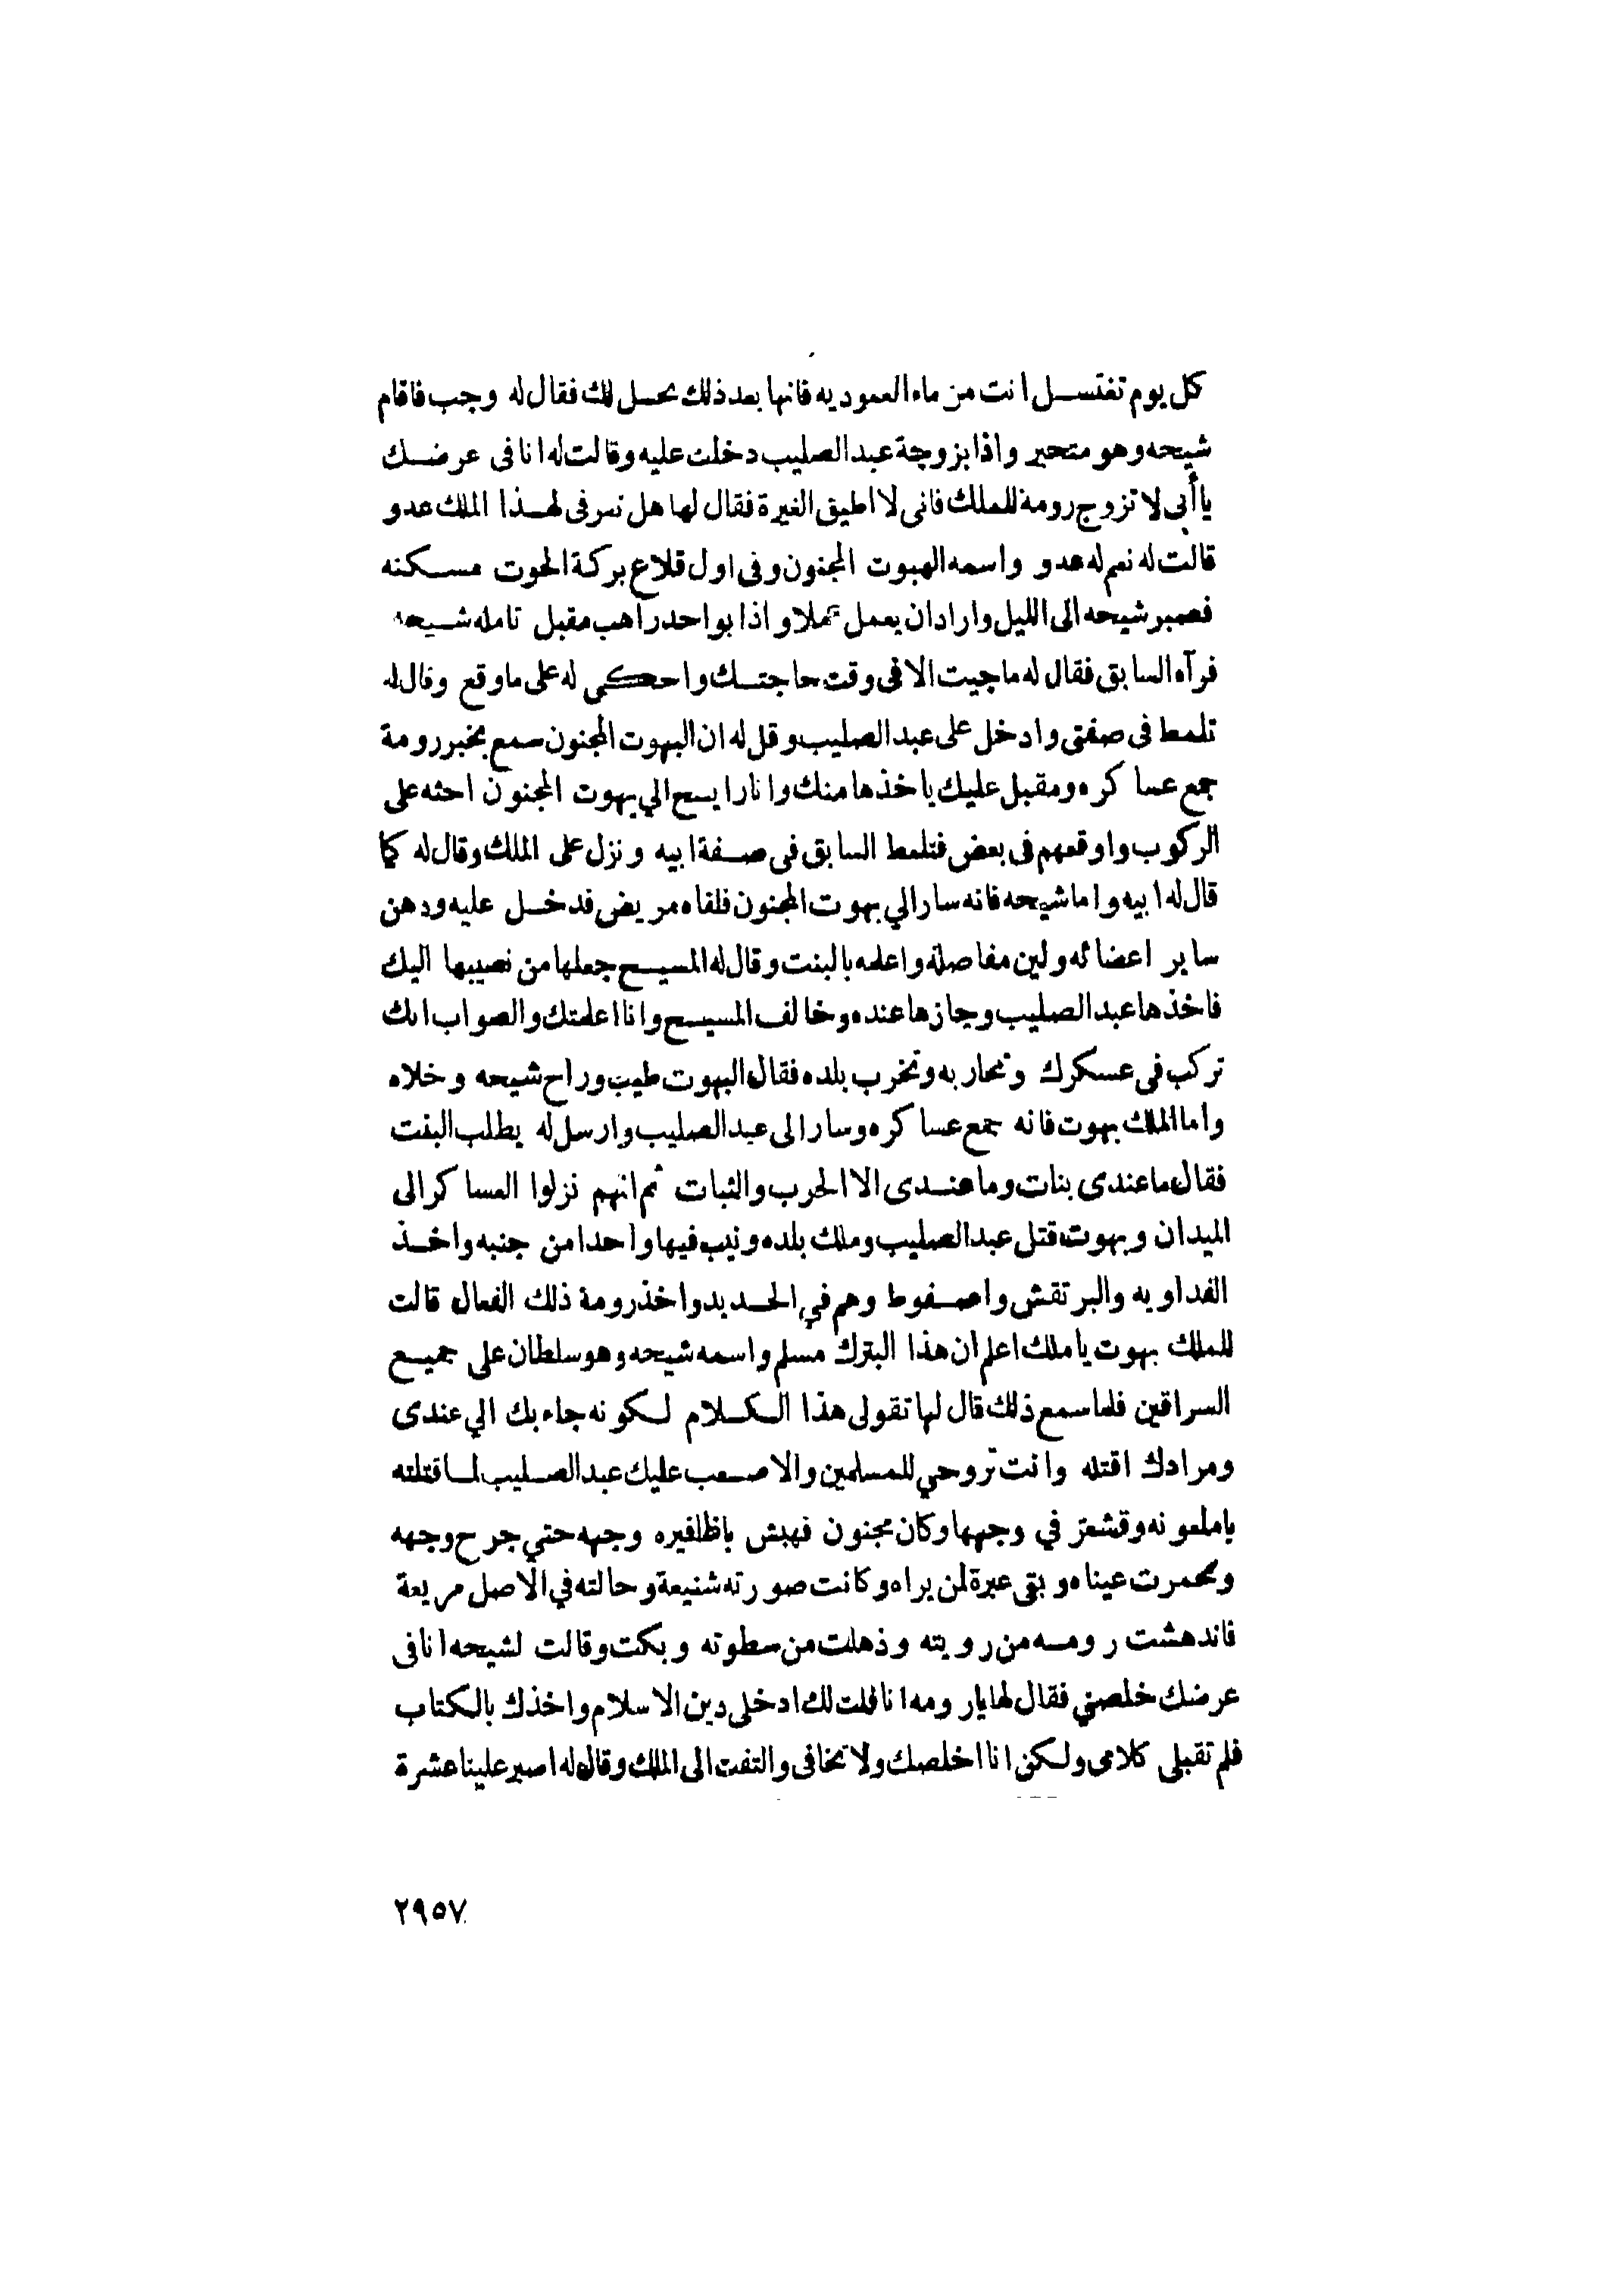 كل يوم تغتسل انت من ماء العموديه فانها بعد ذلك تحسل لك فقال له وجب فاقام
شيحه وهو متحير واذا بزوجة عبد الصليب دخلت عليه وقالت له انا فى عرضك
يا أبى لا تزوج رومة للملك فانى لا اطيق الغيرة فقال لها هل تعرفى لهذا الملك عدو
قالت له نعم له عدو واسمه الهبوت المجنون وفى اول قلاع بركة الحوت مسكنه
فصبر شيحه الى الليل واراد ان يعمل عملا واذا بواحد راهب مقبل تامله شيحه
فرآه السابق فقال له ما جيت الا فى وقت حاجتك واحكي له على ما وقع وقال له
تلمط فى صفتى وادخل على عبد الصليب وقل له ان البهوت المجنون سمع بخبر رومة
جمع عساكره ومقبل عليك ياخذها منك وانا رايح الي بهوت المجنون احثه على
الركوب واوقعهم فى بعض فتلمط السابق فى صفة ابيه ونزل على الملك وقال له كما
قال له ابيه واما شيحه فانه سار الي بهوت المجنون فلقاه مريض فدخل عليه ودهن
ساير اعضائه ولين مفاصله واعلمه بالبنت وقال له المسيح جعلها من نصيبها اليك
فاخذها عبد الصليب وجازها عنده وخالف المسيح وانا اعلمتك والصواب انك
تركب فى عسكرك وتحاربه وتخرب بلده فقال البهوت طيب وراح شيحه وخلاه
واما الملك بهوت فانه جمع عساكره وسار الى عبد الصليب وارسل له يطلب البنت
فقال ما عندى بنات وما عندى الا الحرب والثبات ثم انهم نزلوا العساكر الى
الميدان وبهوت قتل عبد الصليب وملك بلده ونيب فيها واحدا من جنبه واخذ
الفداويه والبرتقش واصفوط وهم في الحديد واخذ رومة ذلك الفعال قالت
للملك بهوت يا ملك اعلم ان هذا البترك مسلم واسمه شيحه وهو سلطان على جميع
السراقين فلما سمع ذلك قال لها تقولى هذا الكلام لكونه جاء بك الي عندى
ومرادك اقتله وانت تروحي للمسلمين والا صعب عليك عبد الصليب لما قتلته
يا ملعونه وقشعر في وجهها وكان مجنون فهبش باظافيره وجهه حتي جرح وجهه
ومحمرت عيناه وبقى عبرة لمن يراه وكانت صورته شنيعة وحالته في الاصل مريعة
فاندهشت رومه من رويته وذهلت من سطوته وبكت وقالت لشيحه انا فى
عرضك خلصني فقال لها يا رومه انا قلت لك ادخلى دين الاسلام واخذك بالكتاب
فلم تقبلى كلامى ولكن انا اخلصك ولا تخافى والتفت الى الملك وقال له اصبر علينا عشرة
٢٩٥٧